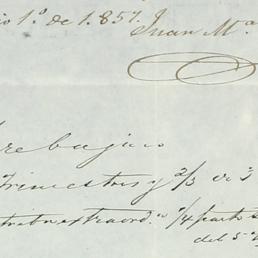 io 1.º de 1.857.
Juan M.ª
rebajas
Trimestres y 2/3 de
extraord.ª 1/4 parte
del 5